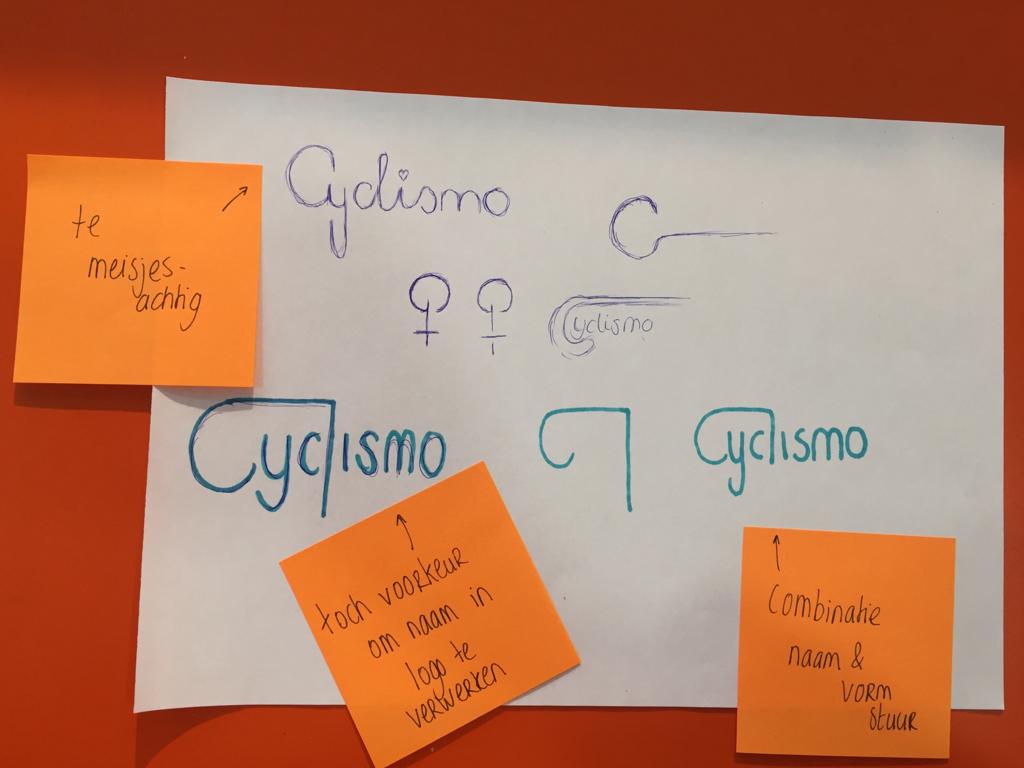 Cyclismo
te
meisjes-
achtig
Cyclismo
Cyclismo
Cyclismo
toch voorkeur
om naam in
logo te
verwerken
Combinatie
naam &
vorm
stuur